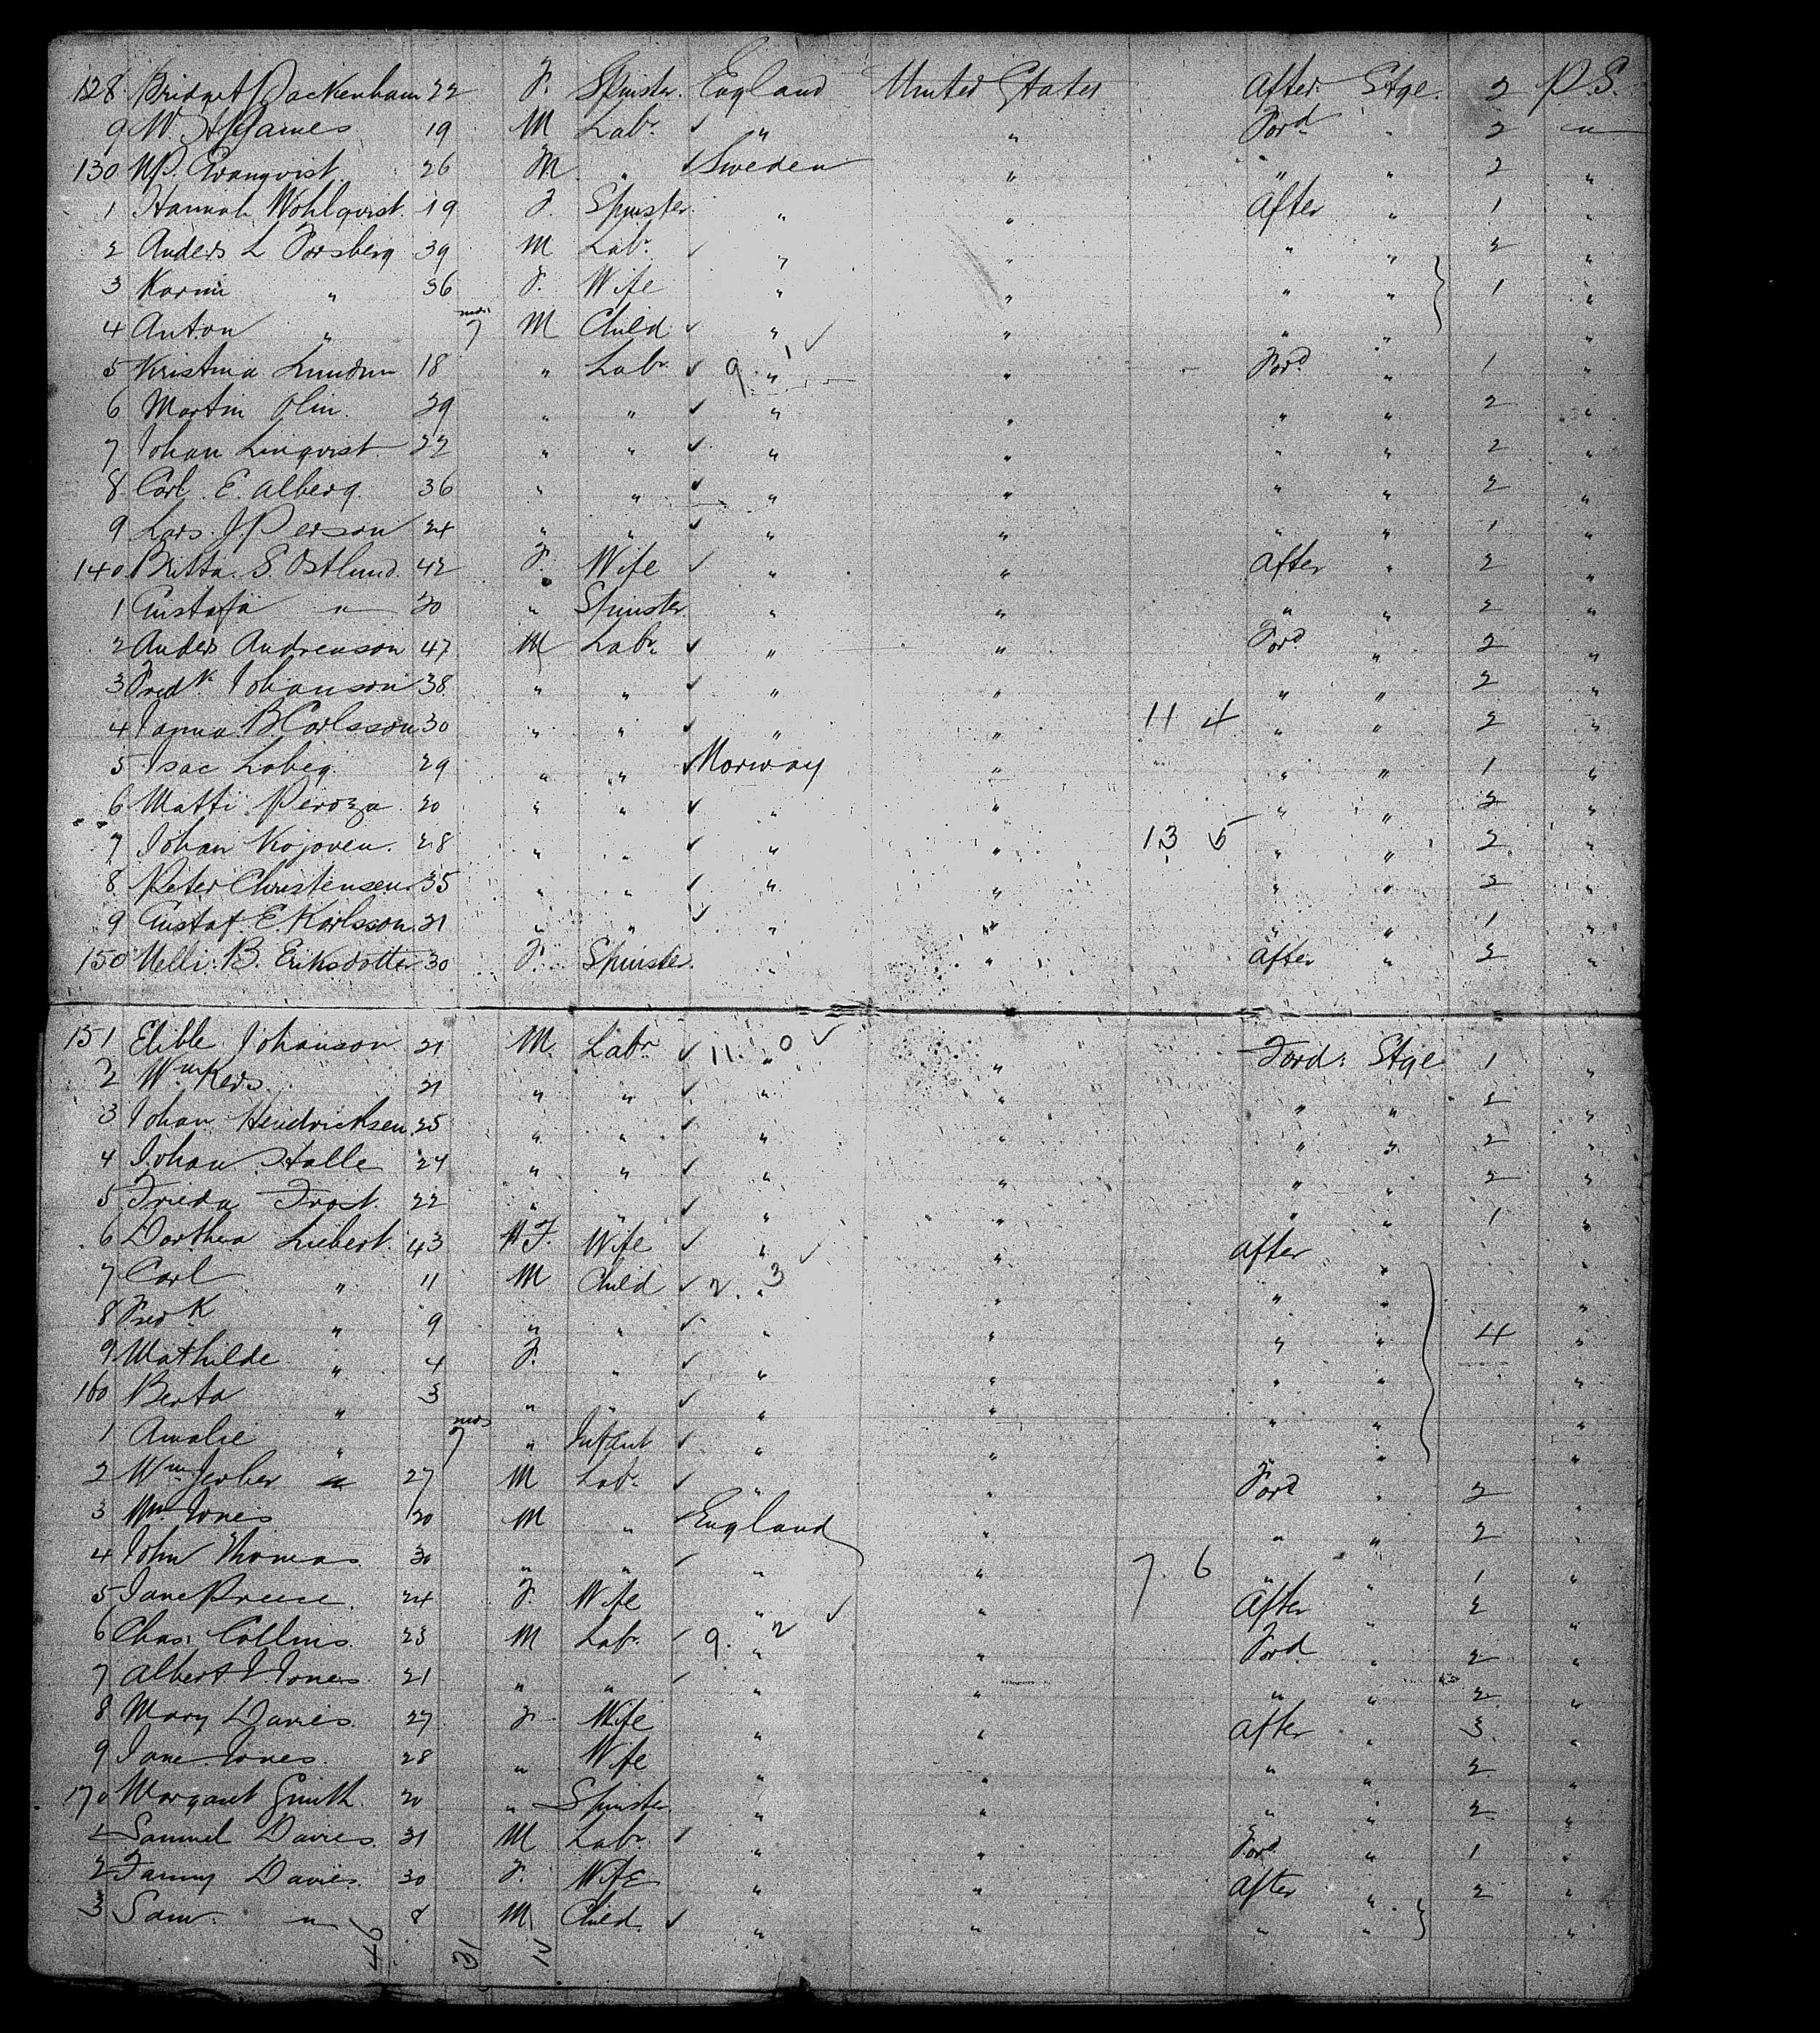 128 Bridget Packenham 22 F. Spinster. England United States After Stge. 2 P.S.
9 W. H. James 19 M Labr. ✓ " " Ford " 2 "
130 N.P. Evanqvist 26 M " ✓ Sweden " " " 2 "
1 Hannah Wohlqvist 19 F. Spinster " " After " 1 "
2 Anders L Forsberg 39 M Labr. ✓ " " " " 2 "
3 Karin " 36 F. Wife " " " " 1 "
4 Anton " mos 7 M Child ✓ " ✓ " " " "
5 Kristina 18 " Labr ✓ 9 " 1 " Ford. " 1 "
6 Martin Olin. 29 " " ✓ " " " " 2 "
7 Johan Linqvist 22 " " ✓ " " " " 2 "
8 Carl. E. Alberg. 36 " " ✓ " " " " 2 "
9 Lars. J. Person 24 " " ✓ " " " " 1 "
140 Britta. S. Ostlund. 42 F. Wife ✓ " " After " 2 "
1 Gustafa " 20 " Spinster " " " " 2 "
2 Anders Andrenson 47 M Labr. ✓ " " Ford " 2 "
3 Fredk Johanson 38 " " ✓ " " " " 2 "
4 B. Carlsson 30 " " ✓ " " 11 4 " " 2 "
5 Isac Lobeg. 29 " " ✓ Norway " " " 1 "
6 Matti Peroza 20 " " ✓ " " " " 2 "
7 Johan Kojoven. 28 " " ✓ " " 13 5 " " 2 "
8 Peter Christensen 35 " " ✓ " " " " 2 "
9 Gustaf. E. Karlsson. 21 " " ✓ " " " " 1 "
150 Nelli. B. Eriksdotter 30 F. Spinster. " " After " 2 "
151 Johanson 21 M. Labr ✓ 11. " 0 ✓ " Ford: Stge 1 "
2 Wm Kers 21 " " ✓ " " " " 2 "
3 Johan Hendricksen. 25 " " ✓ " " " " 2 "
4 Johan Halle 24 " " ✓ " " " " 2 "
5 Frieda Frost. 22 " " ✓ " " " " 1 "
6 Dorthea Liebert. 43 F. Wife ✓ " ✓ " After " "
7 Carl " 11 M Child ✓ 2. " 3 " " " "
8 Fredk " 9 " " ✓ " " " " 4 "
9 Mathilde " 4 F. " ✓ " " " " "
160 Berta " 3 " " ✓ " " " " "
1 Amalie " mos 7 " Infant ✓ " " " " "
2 Wm Gerber 27 M Labr. ✓ " " Ford " 2 "
3 Wm Jones 20 M " ✓ England " " " 2 "
4 John Thomas 30 " " ✓ " " 7. 6 " " 1 "
5 Jane Preece. 24 F. Wife " ✓ " After " 2 "
6 Chas. Collins. 23 M Labr. ✓ 9. " 2 " Ford " 2 "
7 Albert J. Jones. 21 " " ✓ " " " " 2 "
8 Mary Davies. 27 F. Wife " " After " 3. "
9 Jane Jones. 28 " Wife " " " " 2 "
170 Margaret Smith. 20 " Spinster. " " " " 2 "
1 Samuel Davies. 31 M Labr. ✓ " " Ford " 1 "
2 Fanny Davies. 30 F. Wife " " After " 2 "
3 Sam. " 8 M Child. ✓ " " " " "
46 31